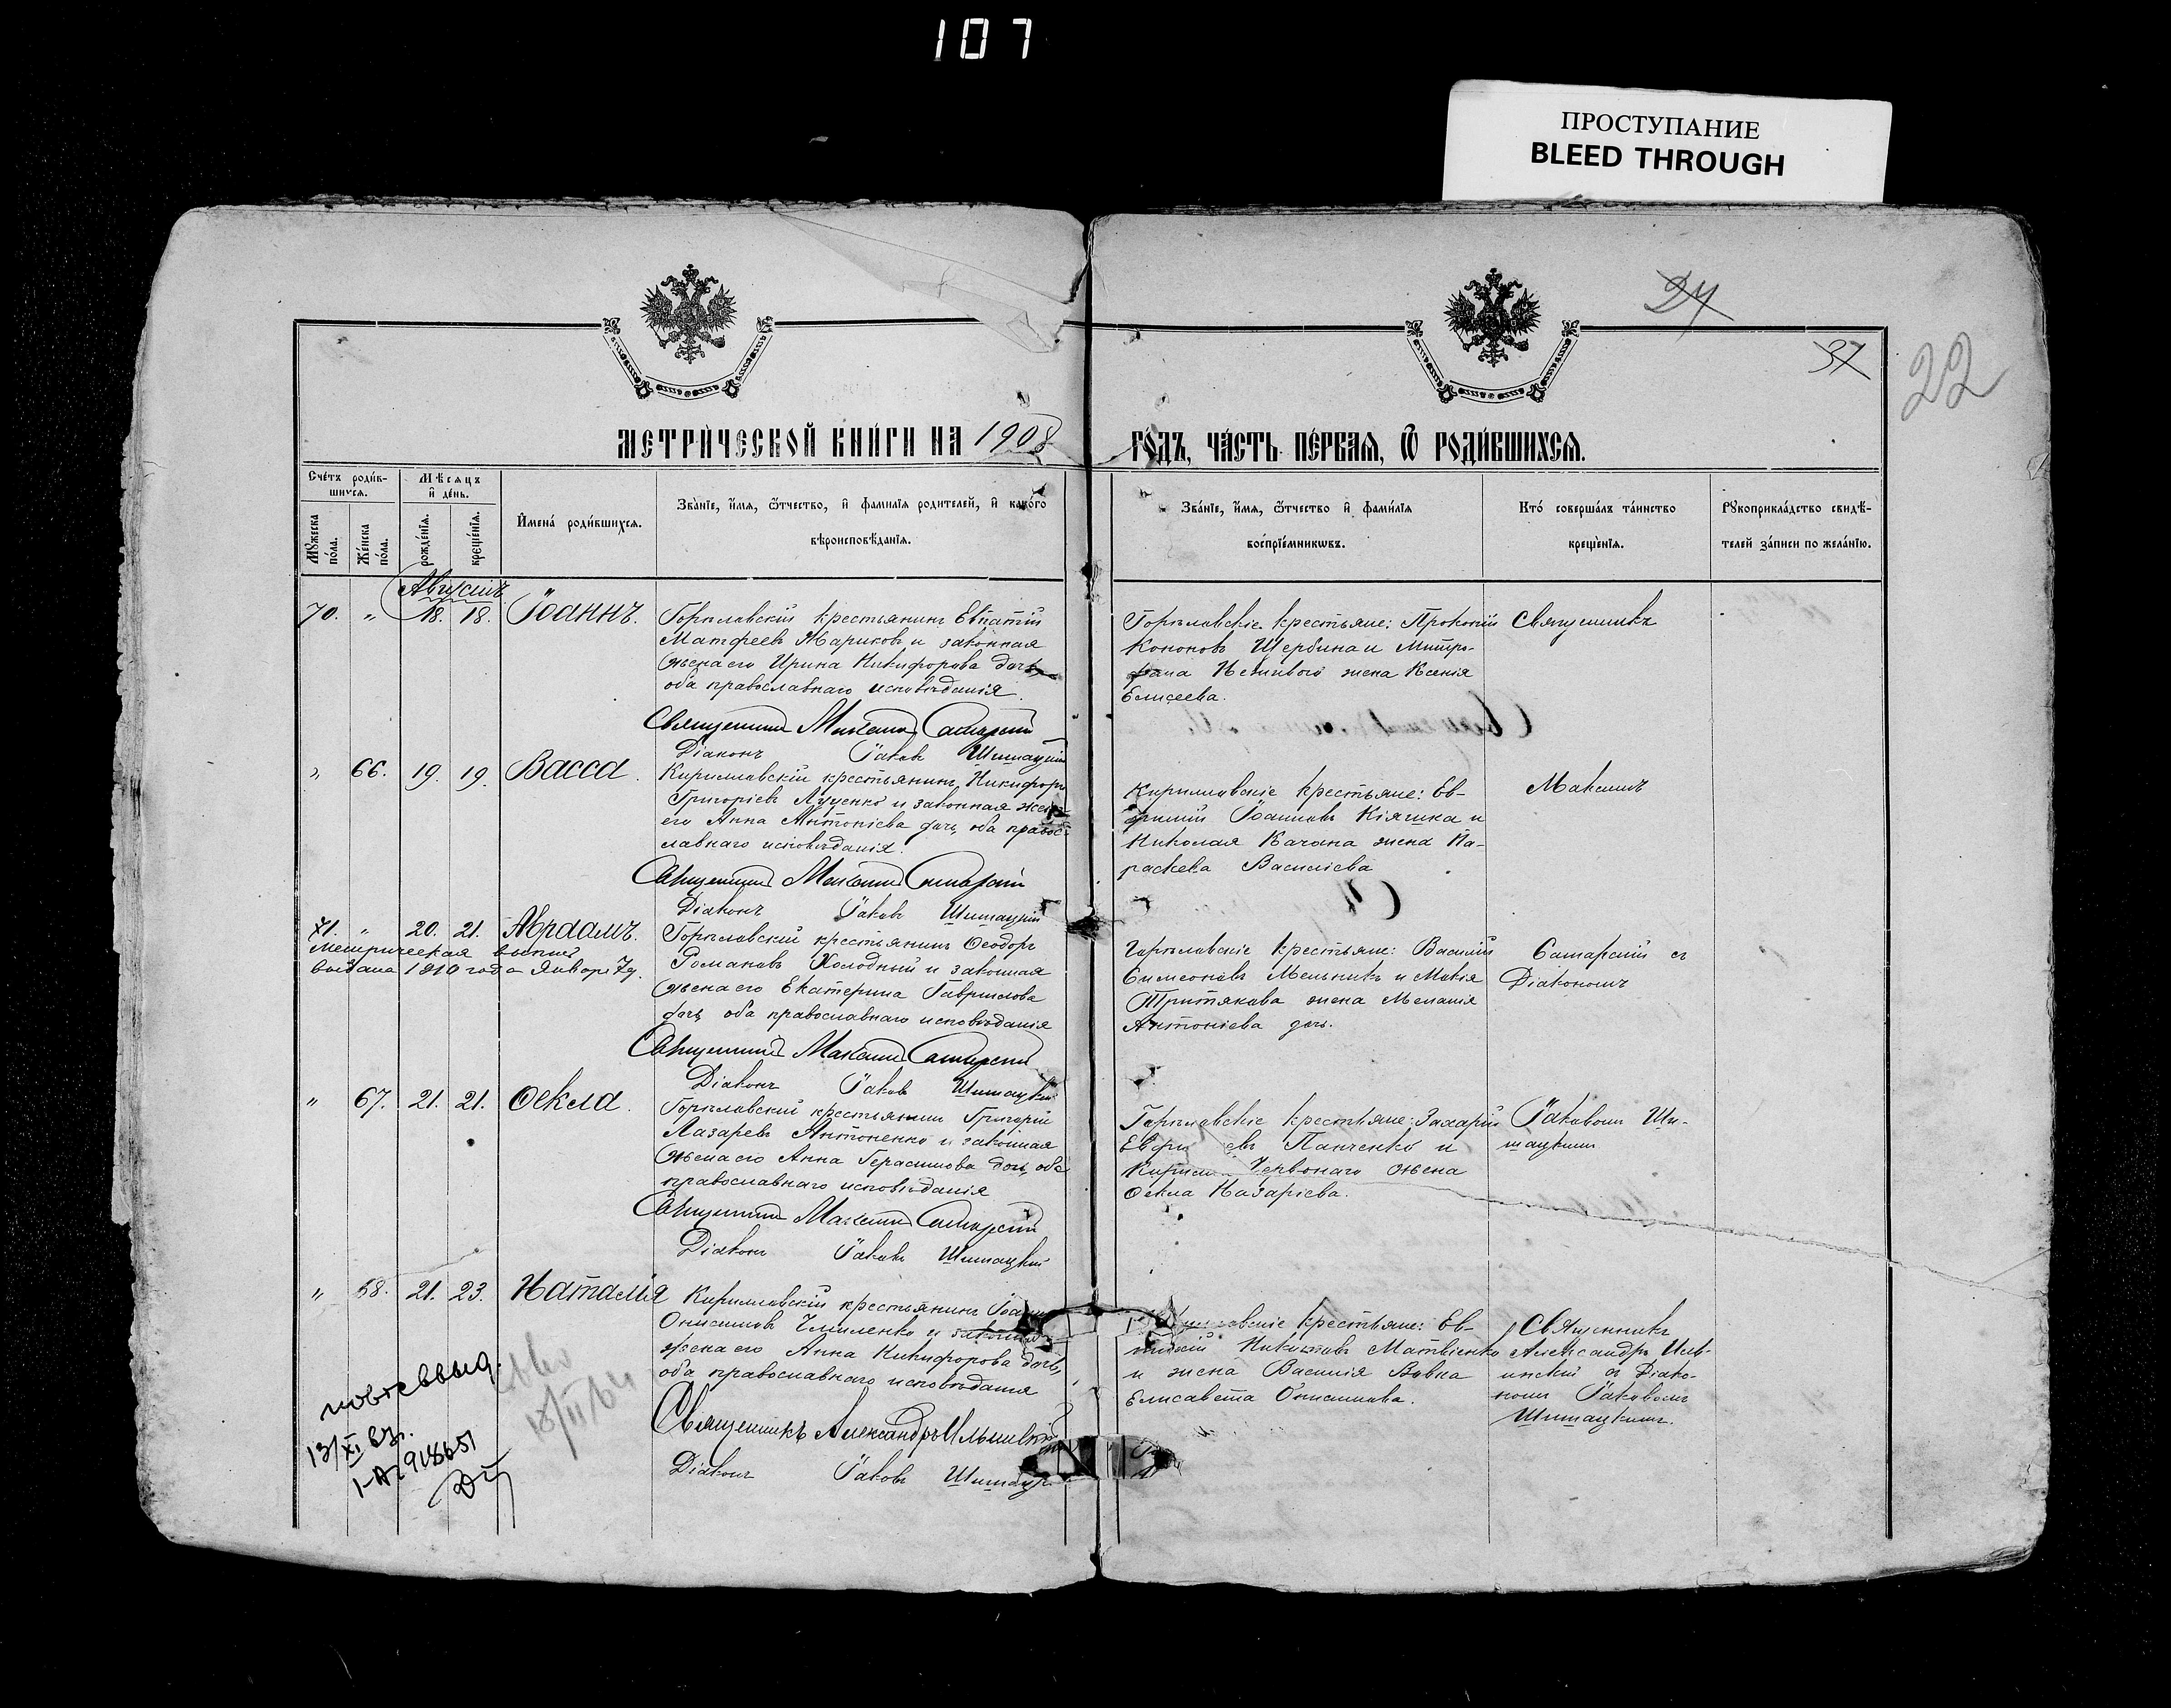 107
ПРОСТУПАНИЕ
BLEED THROUGH
24
37
22
МЕТРИЧЕСКОЙ КНИГИ НА 1908
ГОДЪ, ЧАСТЬ ПЕРВАЯ, Ѿ РОДИВШИХСЯ.
Счетъ родив-
шихся.
Мужеска пола.
Женска пола.
Мѣсяцъ и день.
рожденія.
крещенія.
Имена родившихся.
Званіе, имя, ѿтчество, и фамилія родителей, и какого
вѣроисповѣданія.
Званіе, имя, ѿтчество и фамилія
воспріемниковъ.
Кто совершалъ таинство
крещенія.
Рукоприкладство свидѣ-
телей записи по желанію.
Августъ
70. " 18. 18. Іоаннъ.
Горѣлавскій крестьянинъ Евпатій
Матфеевъ Жариковъ и законная
жена его Ирина Никифорова дочь
оба православнаго исповѣданія.
Священникъ Максимъ Самарскій
Діаконъ Іаковъ Шишацкій
Горѣлавскіе крестьяне: Прокопій
Кононовъ Щербина и Митро-
фана жена Ксенія
Елисеева.
Священникъ
" 66. 19. 19. Васса.
Кирилловскій крестьянинъ Никифоръ
Григоріевъ Луценко и законная жена
его Анна Антоніева дочь, оба правос-
лавнаго исповѣданія.
Священникъ Максимъ Самарскій
Діаконъ Іаковъ Шишацкій
Кирилловскіе крестьяне: Ев-
фимій Іоанновъ Кіяшка и
Николая Качана жена Па-
раскева Василіева
Максимъ
71. " 20. 21. Авраамъ.
Метрическая выпись
выдана 1910 года Января 7 д.
Горѣлавскій крестьянинъ Ѳеодоръ
Романовъ Холодный и законная
жена его Екатерина Гаврилова
дочь оба православнаго исповѣданія
Священникъ Максимъ Самарскій
Діаконъ Іаковъ Шишацкій
Горѣлавскіе крестьяне: Василій
Симеоновъ Мельникъ и Мокія
Притякова жена Меланія
Антоніева дочь.
Самарскій съ
Діакономъ
" 67. 21. 21. Ѳекла.
Горѣлавскій крестьянинъ Григорій
Лазаревъ Антоненко и законная
жена его Анна Герасимова дочь, оба
православнаго исповѣданія
Священникъ Максимъ Самарскій
Діаконъ Іаковъ Шишацкій
Горѣлавскіе крестьяне: Захарій
Панченко и
Червонаго жена
Ѳекла Назаріева.
Іаковомъ Ши-
шацкимъ
" 68. 21. 23. Наталія
Кирилловскій крестьянинъ Іоаннъ
Онисимовъ Чмиленко и законная
жена его Анна Никифорова дочь,
оба православнаго исповѣданія
Священникъ Александръ Ильинскій
Діаконъ Іаковъ Шишацкій
крестьяне: Ев-
Никитовъ Матвіенко
и жена Василія Вовка
Елисавета Онисимова.
Священникъ
Александръ Иль-
инскій съ Діако-
номъ Іаковомъ
Шишацкимъ.
18/II/64
13/XI
918651